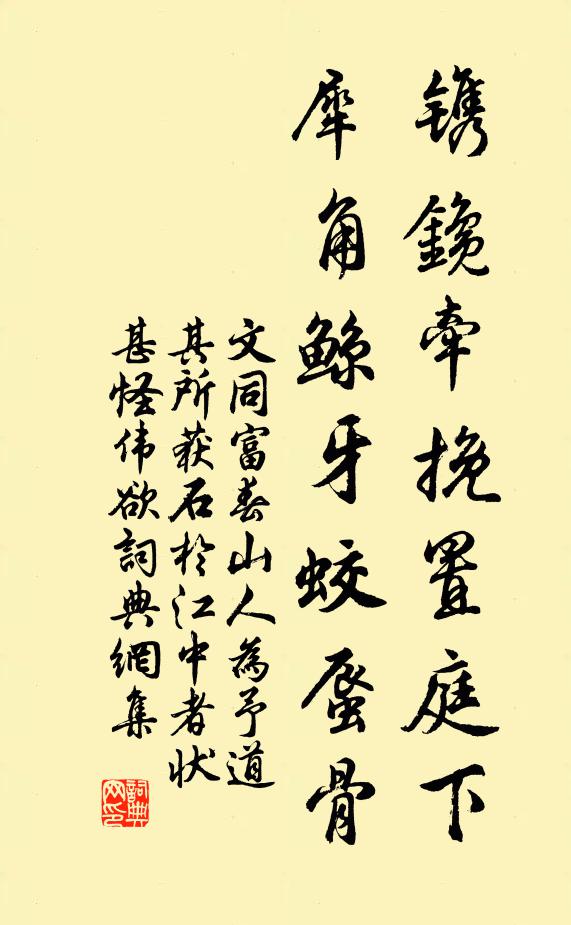 镌鑱牵挽置庭下
犀角鲸牙蛟蜃骨
文同富春山人為予道
其所获石於江中者状
甚怪伟欲詞典網集
詞典网印